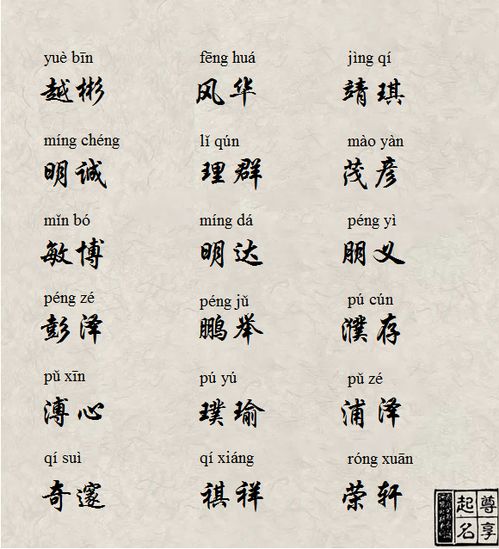 yuè bīn fēng huá jìng qí
越彬 风华 靖琪
míng chéng lǐ qún mào yàn
明诚 理群 茂彦
mǐn bó míng dá péng yì
敏博 明达 朋义
péng zé péng jǔ pú cún
彭泽 鹏举 濮存
pǔ xīn pú yú pǔ zé
溥心 璞瑜 浦泽
qí suì qí xiáng róng xuān
奇邃 祺祥 荣轩
尊享
起名